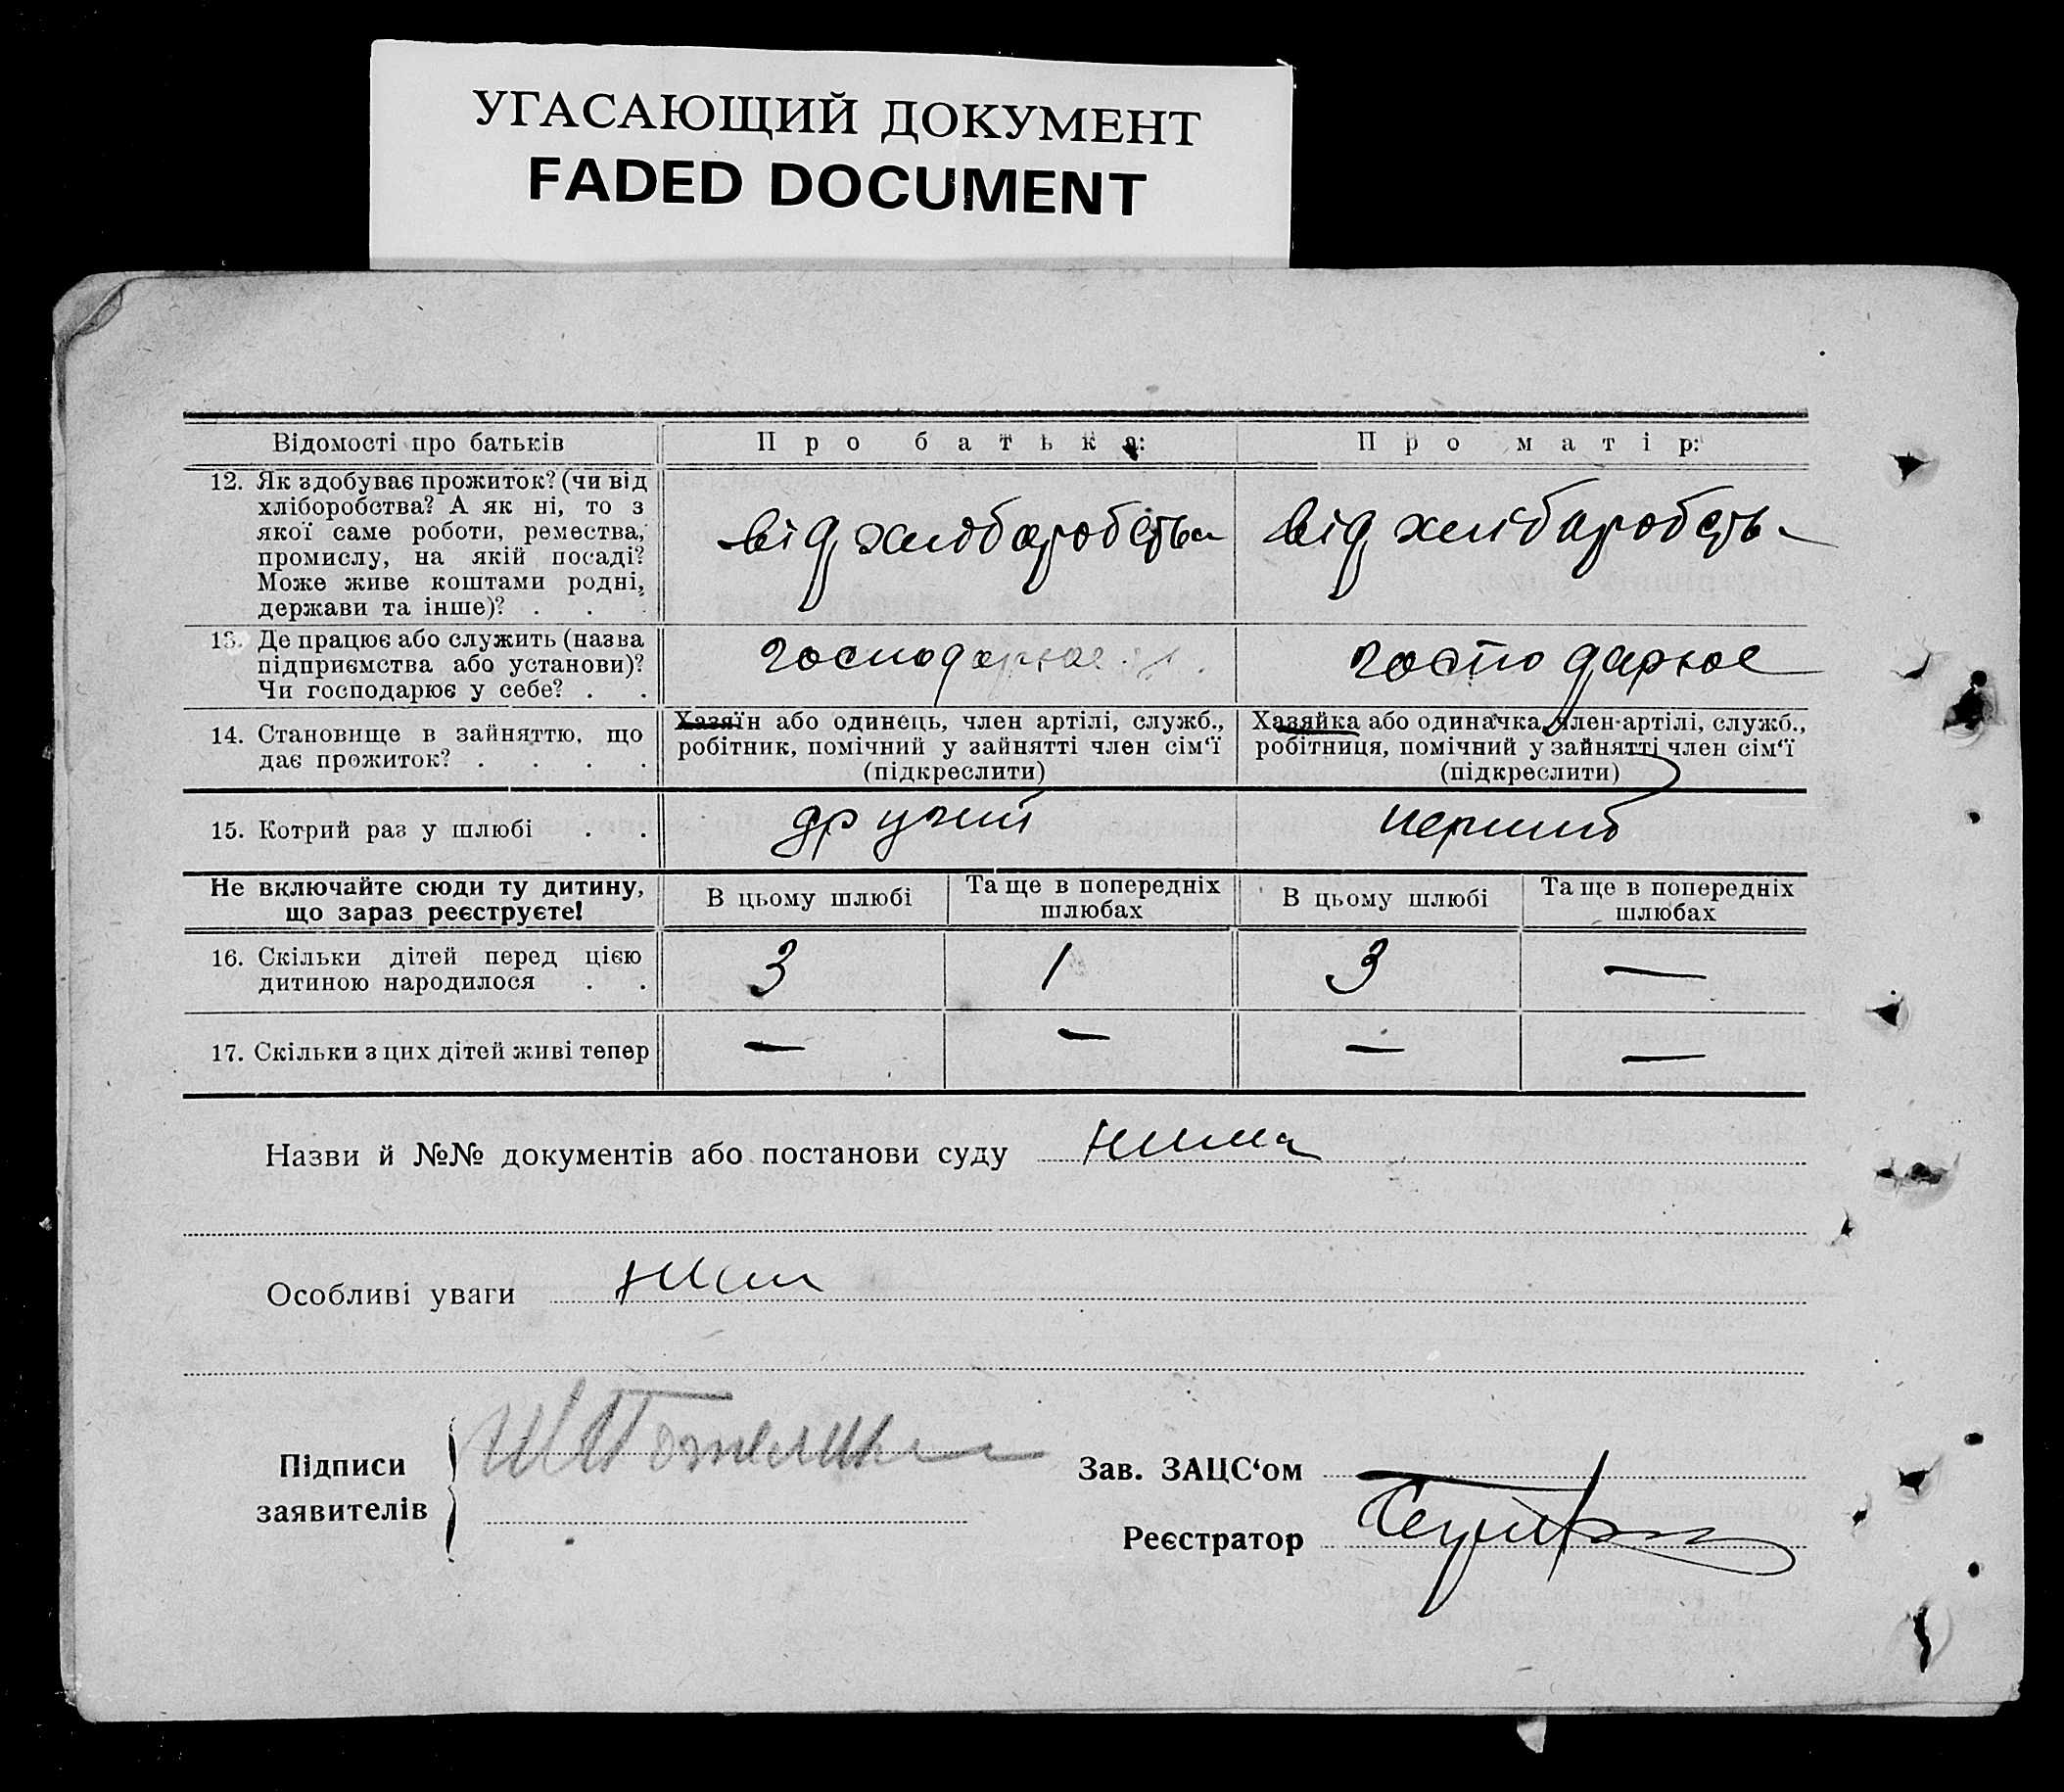 УГАСАЮЩИЙ ДОКУМЕНТ
FADED DOCUMENT
Відомості про батьків
Про батька:
Про матір:
12. Як здобуває прожиток? (чи від
хліборобства? А як ні, то з
якої саме роботи, ремества,
промислу, на якій посаді?
Може живе коштами родні,
держави та інше)? . . .
від хлібаробства
від хлібаробств
13. Де працює або служить (назва
підприємства або установи)?
Чи господарює у себе? . .
господарює
господарює
14. Становище в зайняттю, що
дає прожиток? . . . .
Хазяїн або одинець, член артілі, служб.,
робітник, помічний у зайнятті член сім‘ї
(підкреслити)
Хазяйка або одиначка, член-артілі, служб.,
робітниця, помічний у зайнятті член сім‘ї
(підкреслити)
15. Котрий раз у шлюбі . .
другий
перший
Не включайте сюди ту дитину,
що зараз реєструєте!
В цьому шлюбі
Та ще в попередніх
шлюбах
В цьому шлюбі
Та ще в попередніх
шлюбах
16. Скільки дітей перед цією
дитиною народилося . .
3
1
3
—
17. Скільки з цих дітей живі тепер
—
—
—
—
Назви й №№ документів або постанови суду нима
Особливі уваги
Підписи
заявителів
Зав. ЗАЦС‘ом
Реєстратор